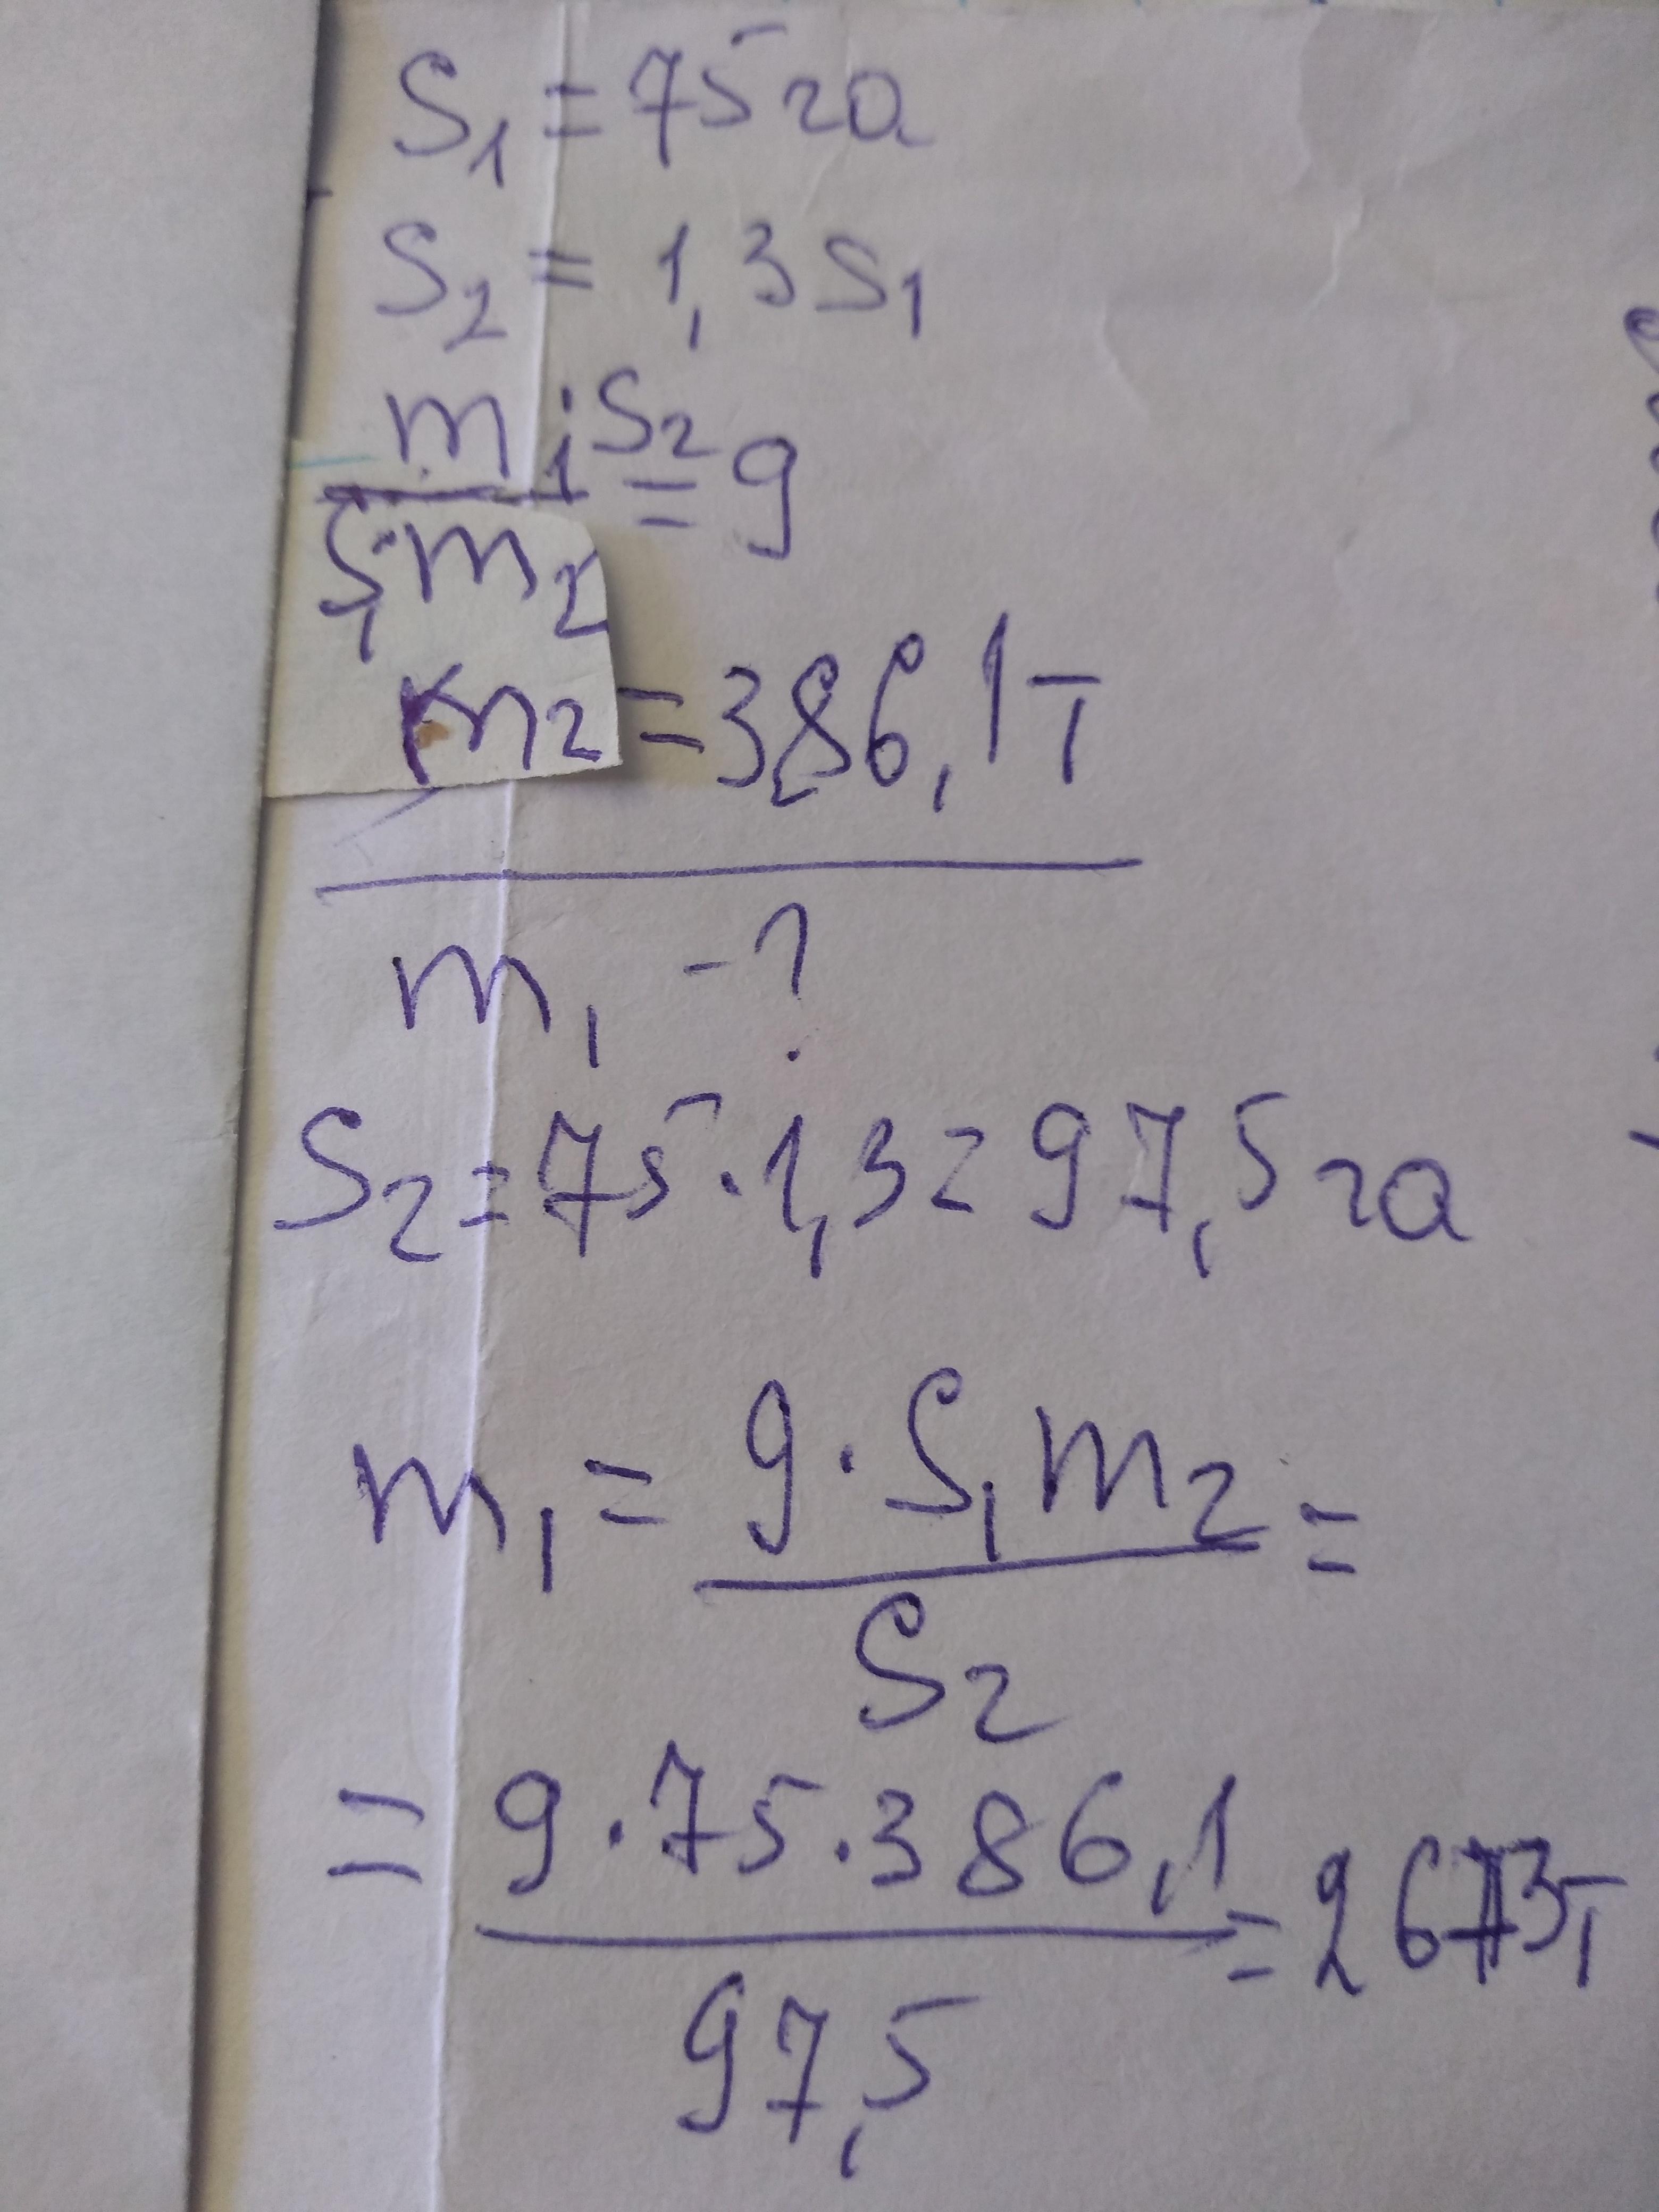 S₁ = 75 га
S₂ = 1,3 S₁
m₁·S₂ = 9
S₁·m₂
m₂ = 386,1 т
m₁ - ?
S₂ = 75·1,3 = 97,5 га
m₁ = 9·S₁m₂ =
S₂
= 9·75·386,1 = 2673 т
97,5